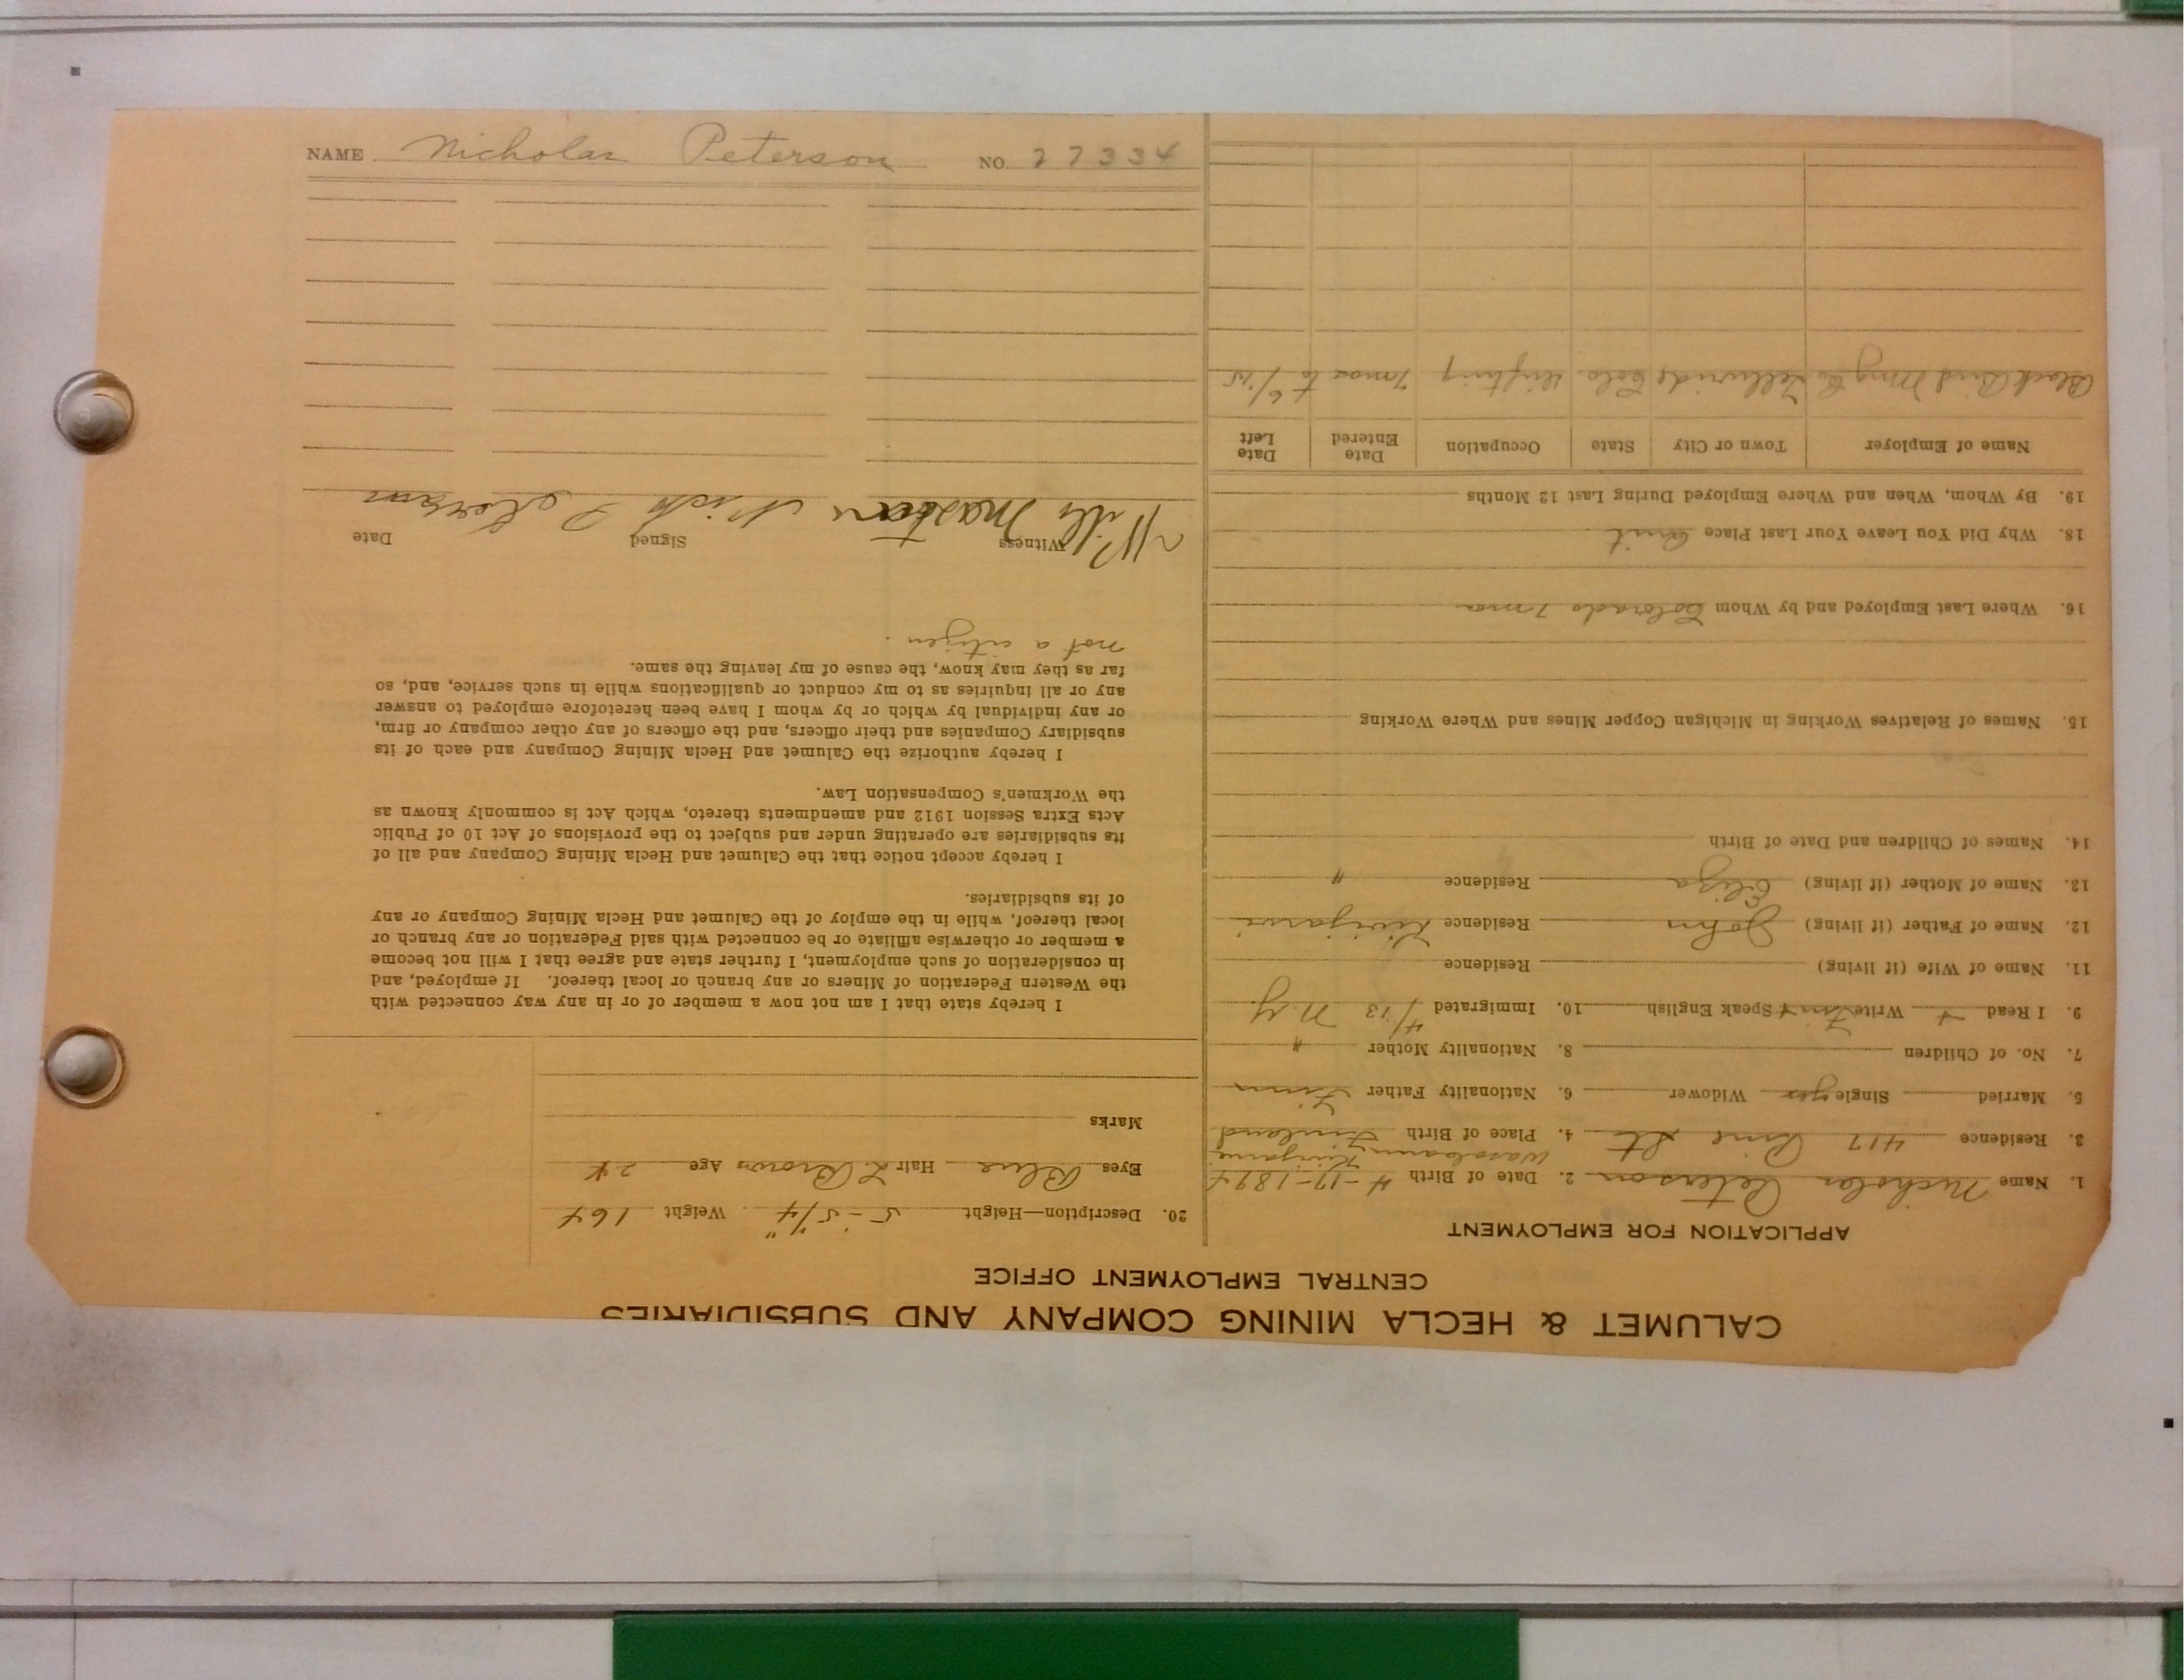 NAME Nicholas Peterson NO. 27334
CALUMET & HECLA MINING COMPANY AND SUBSIDIARIES
CENTRAL EMPLOYMENT OFFICE
APPLICATION FOR EMPLOYMENT
1. Name Nicholas Peterson 2. Date of Birth 4-17-1894
3. Residence 417 Pine St 4. Place of Birth Finland
5. Married Single yes Widower 6. Nationality Father Finn
7. No. of Children 8. Nationality Mother "
9. I Read + Write Finn + Speak English 10. Immigrated 4/13 N.Y.
11. Name of Wife (if living) Residence
12. Name of Father (if living) John Residence
13. Name of Mother (if living) Eliza Residence "
14. Names of Children and Date of Birth
15. Names of Relatives Working in Michigan Copper Mines and Where Working
16. Where Last Employed and by Whom Colorado 7 mos
18. Why Did You Leave Your Last Place Quit
19. By Whom, When and Where Employed During Last 12 Months
Name of Employer Town or City State Occupation Date Entered Date Left
Black Bird Mng Co Telluride Colo. 7 mos to 6/15
20. Description—Height 5-5 1/4" Weight 164
Eyes Blue Hair L Brown Age 24
Marks
I hereby state that I am not now a member of or in any way connected with
the Western Federation of Miners or any branch or local thereof. If employed, and
in consideration of such employment, I further state and agree that I will not become
a member or otherwise affiliate or be connected with said Federation or any branch or
local thereof, while in the employ of the Calumet and Hecla Mining Company or any
of its subsidiaries.
I hereby accept notice that the Calumet and Hecla Mining Company and all of
its subsidiaries are operating under and subject to the provisions of Act 10 of Public
Acts Extra Session 1912 and amendments thereto, which Act is commonly known as
the Workmen's Compensation Law.
I hereby authorize the Calumet and Hecla Mining Company and each of its
subsidiary Companies and their officers, and the officers of any other company or firm,
or any individual by which or by whom I have been heretofore employed to answer
any or all inquiries as to my conduct or qualifications while in such service, and, so
far as they may know, the cause of my leaving the same.
not a citizen.
Witness Signed Date
Nick Peterson